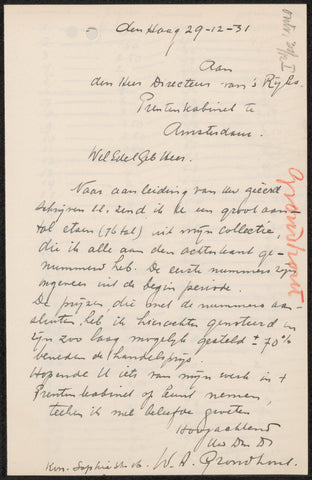 den Haag 29-12-31
Aan
den Heer Directeur van 's Rijks
Prentenkabinet te
Amsterdam.
WelEdelGeb Heer.
Naar aanleiding van Uw geëerd
schrijven zend ik U een groot aan-
tal etsen (76 tal) uit mijn collectie,
die ik alle aan den achterkant ge-
nummerd heb. De eerste nummers zijn
ongeveer uit de begin periode.
De prijzen, die met de nummers aan-
sluiten, heb ik hierachter genoteerd en
zijn zoo laag mogelijk gesteld ± 70%
beneden de handelsprijs.
Hopende U iets van mijn werk in 't
Prentenkabinet op kunt nemen,
teeken ik met beleefde groeten
Hoogachtend
Uw Dw Dr
W. A. Grondhout.
Kon. Sophiestr. 16.
Grondhout